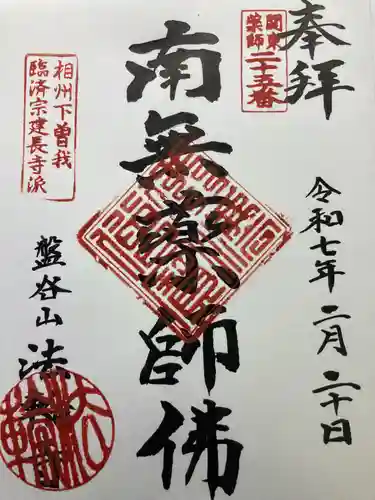 奉拝
関東
薬師
二十五番
令和七年二月二十日
南無薬師佛
相州下曽我
臨済宗建長寺派
盤谷山